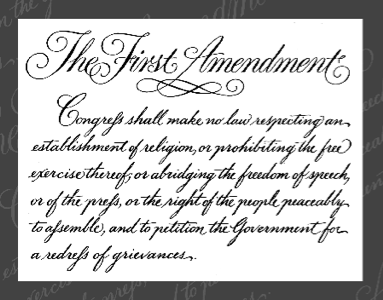 The First Amendment
Congreſs shall make no law respecting an
establishment of religion, or prohibiting the free
exercise thereof; or abridging the freedom of speech,
or of the preſs, or the right of the people peaceably
to aſsemble, and to petition the Government for
a redreſs of grievances.